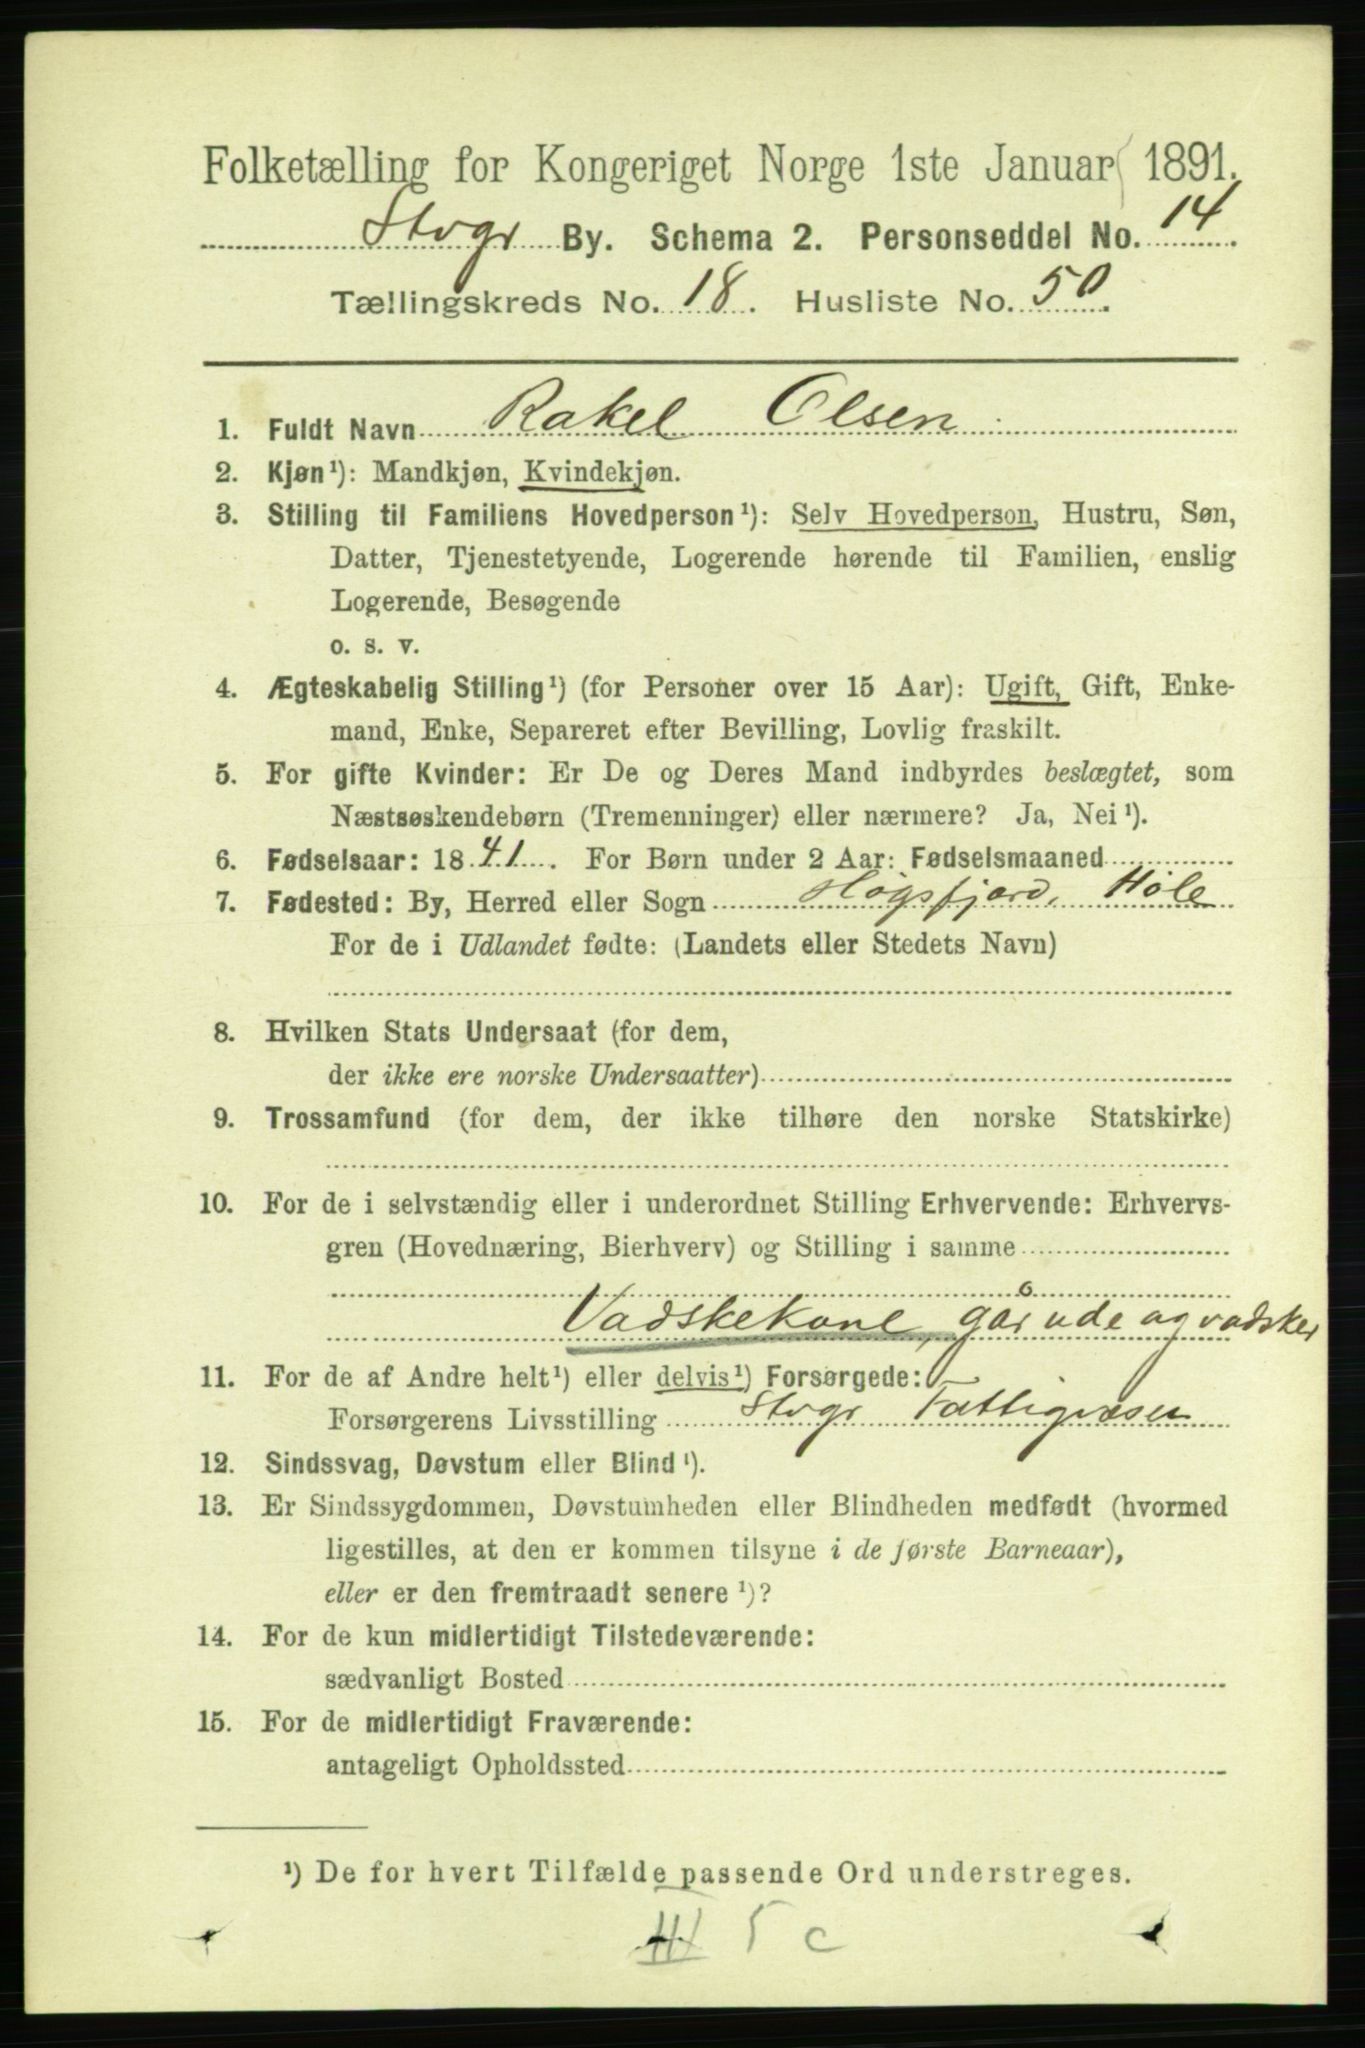 Folketælling for Kongeriget Norge 1ste Januar 1891.
Stvgr By. Schema 2. Personseddel No. 14
Tællingskreds No. 18. Husliste No. 50.
1. Fuldt Navn Rakel Olsen
2. Kjøn¹): Mandkjøn, Kvindekjøn.
3. Stilling til Familiens Hovedperson¹): Selv Hovedperson, Hustru, Søn,
Datter, Tjenestetyende, Logerende hørende til Familien, enslig
Logerende, Besøgende
o. s. v.
4. Ægteskabelig Stilling¹) (for Personer over 15 Aar): Ugift, Gift, Enke-
mand, Enke, Separeret efter Bevilling, Lovlig fraskilt.
5. For gifte Kvinder: Er De og Deres Mand indbyrdes beslægtet, som
Næstsøskendebørn (Tremenninger) eller nærmere? Ja, Nei¹).
6. Fødselsaar: 1841. For Børn under 2 Aar: Fødselsmaaned
7. Fødested: By, Herred eller Sogn Høgsfjord, Høle
For de i Udlandet fødte: (Landets eller Stedets Navn)
8. Hvilken Stats Undersaat (for dem,
der ikke ere norske Undersaatter)
9. Trossamfund (for dem, der ikke tilhøre den norske Statskirke)
10. For de i selvstændig eller i underordnet Stilling Erhvervende: Erhvervs-
gren (Hovednæring, Bierhverv) og Stilling i samme
Vadskekone, går ude og vadsker
11. For de af Andre helt¹) eller delvis¹) Forsørgede:
Forsørgerens Livsstilling Stvgr Fattigvæsen
12. Sindssvag, Døvstum eller Blind¹).
13. Er Sindssygdommen, Døvstumheden eller Blindheden medfødt (hvormed
ligestilles, at den er kommen tilsyne i de første Barneaar),
eller er den fremtraadt senere¹)?
14. For de kun midlertidigt Tilstedeværende:
sædvanligt Bosted
15. For de midlertidigt Fraværende:
antageligt Opholdssted
¹) De for hvert Tilfælde passende Ord understreges.
III 5 c